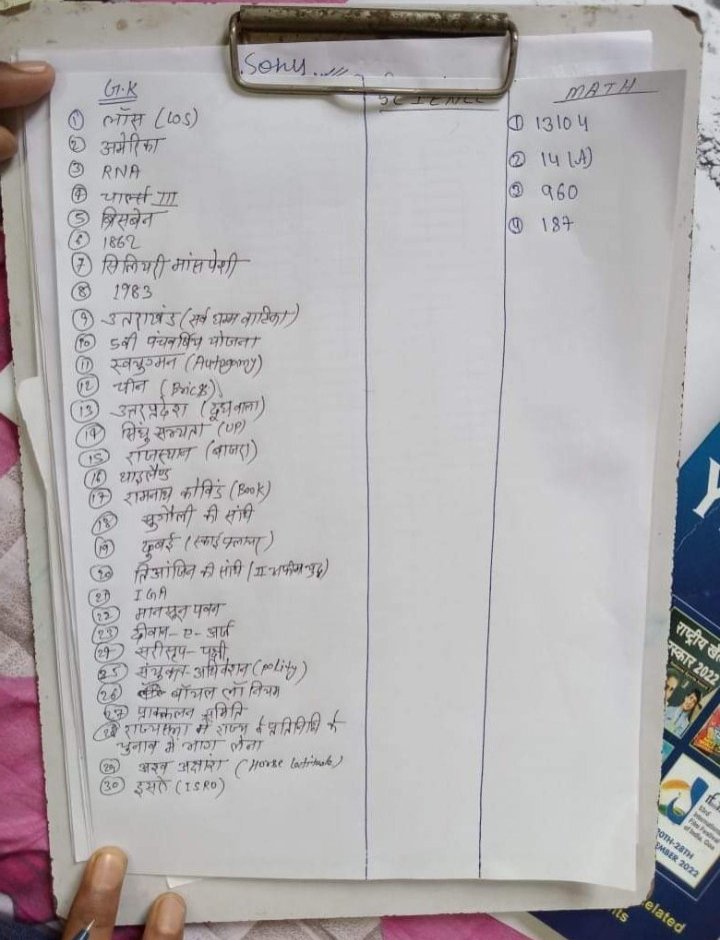 Sonu
G.K
① लॉस (LOS)
② अमेरिका
③ RNA
④ चार्ल्स III
⑤ ब्रिसबेन
⑥ 1862
⑦ सिलियरी मांसपेशी
⑧ 1983
⑨ उत्तराखंड (सर्व धम्म वाटिका)
⑩ 5वी पंचवर्षिय योजना
⑪ स्वयुग्मन (Autogamy)
⑫ चीन (Brics)
⑬ उत्तरप्रदेश (दूधवाला)
⑭ सिंधु सभ्यता (UP)
⑮ राजस्थान (बाजरा)
⑯ थाइलैण्ड
⑰ रामनाथ कोविंड (Book)
⑱ सुगौली की संधि
⑲ दुबई (स्काई
⑳ की संधि (II
㉑ IGA
㉒ मानसून पवन
㉓ दीवान-ए-अर्ज
㉔ सरीसृप-पक्षी
㉕ संयुक्त अधिवेशन (polity)
㉖ बॉयल लॉ नियम
㉗ प्राक्कलन समिति
㉘ राज्यसभा में राज्य के प्रतिनिधि के
चुनाव में भाग लेना
㉙ अश्व अक्षांश (Horse
㉚ इसरो (ISRO)
SCIENCE
MATH
① 13104
② 14 (A)
③ 960
④ 187
राष्ट्रीय खे
स्कार 2022
53rd
International
Film Festival
of India, Goa
20TH-28TH
EMBER 2022
elated